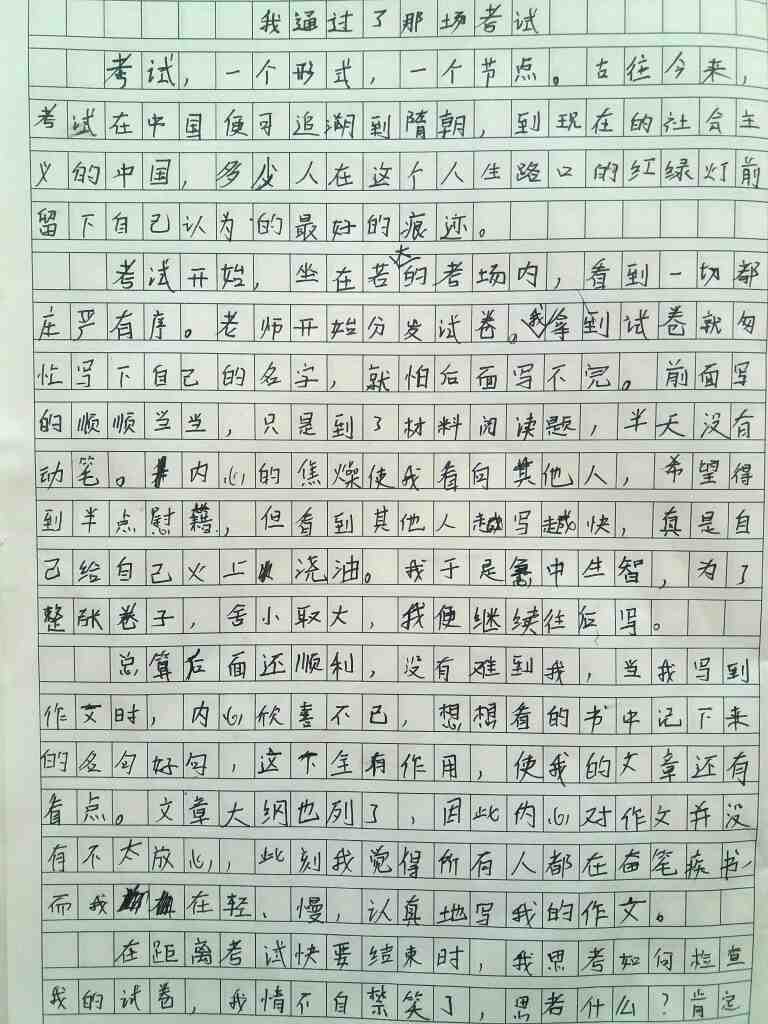 我通过了那场考试
考试，一个形式，一个节点。古往今来，
考试在中国便可追溯到隋朝，到现在的社会主
义的中国，多少人在这个人生路口的红绿灯前
留下自己认为的最好的痕迹。
考试开始，坐在若大的考场内，看到一切都
庄严有序。老师开始分发试卷。我拿到试卷就匆
忙写下自己的名字，就怕后面写不完。前面写
的顺顺当当，只是到了材料阅读题，半天没有
动笔。内心的焦燥使我看向其他人，希望得
到半点慰藉，但看到其他人越写越快，真是自
己给自己火上浇油。我于是急中生智，为了
整张卷子，舍小取大，我便继续往后写。
总算后面还顺利，没有难到我，当我写到
作文时，内心欣喜不已，想想看的书中记下来
的名句好句，这下全有作用，使我的文章还有
看点。文章大纲也列了，因此内心对作文并没
有不太放心，此刻我觉得所有人都在奋笔疾书，
而我在轻、慢，认真地写我的作文。
在距离考试快要结束时，我思考如何检查
我的试卷，我情不自禁笑了，思考什么？肯定